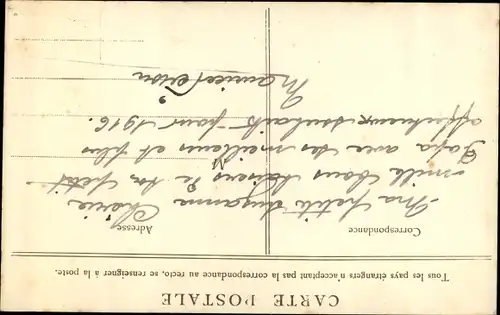 CARTE POSTALE
Tous les pays étrangers n'acceptant pas la correspondance au recto, se renseigner à la poste.
Correspondance
Adresse
Ma petite Suzanne Chérie
mille bons baisers de ton petit
Papa avec ses meilleurs et plus
affectueux souhaits pour 1916.
Maurice